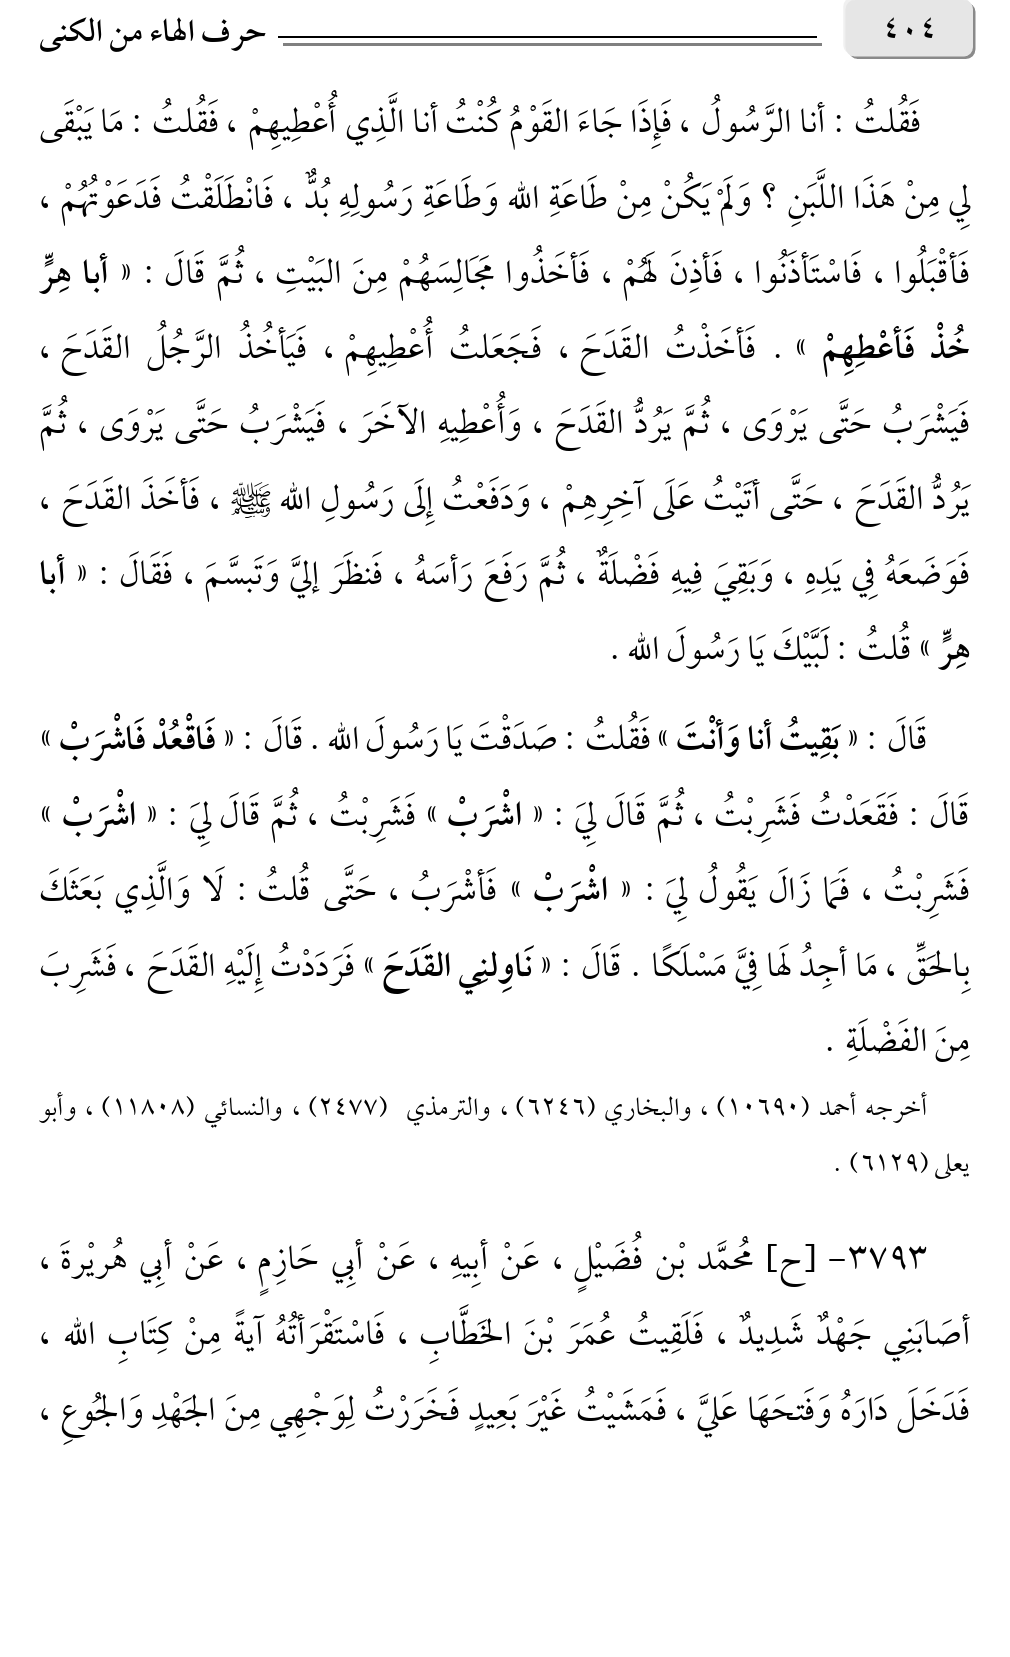 ٤٠٤ حرف الهاء من الكنى
فَقُلتُ : أنا الرَّسُولُ ، فَإِذَا جَاءَ القَوْمُ كُنْتُ أنا الَّذِي أُعْطِيهِمْ ، فَقُلتُ : مَا يَبْقَى
لِي مِنْ هَذَا اللَّبَنِ ؟ وَلَمْ يَكُنْ مِنْ طَاعَةِ الله وَطَاعَةِ رَسُولِهِ بُدٌّ ، فَانْطَلَقْتُ فَدَعَوْتُهُمْ ،
فَأقْبَلُوا ، فَاسْتَأذَنُوا ، فَأذِنَ لَهُمْ ، فَأخَذُوا مَجَالِسَهُمْ مِنَ البَيْتِ ، ثُمَّ قَالَ : « أبا هِرٍّ
خُذْ فَأعْطِهِمْ » . فَأخَذْتُ القَدَحَ ، فَجَعَلتُ أُعْطِيهِمْ ، فَيَأخُذُ الرَّجُلُ القَدَحَ ،
فَيَشْرَبُ حَتَّى يَرْوَى ، ثُمَّ يَرُدُّ القَدَحَ ، وَأُعْطِيهِ الآخَرَ ، فَيَشْرَبُ حَتَّى يَرْوَى ، ثُمَّ
يَرُدُّ القَدَحَ ، حَتَّى أتَيْتُ عَلَى آخِرِهِمْ ، وَدَفَعْتُ إِلَى رَسُولِ الله ﷺ ، فَأخَذَ القَدَحَ ،
فَوَضَعَهُ فِي يَدِهِ ، وَبَقِيَ فِيهِ فَضْلَةٌ ، ثُمَّ رَفَعَ رَأسَهُ ، فَنظَرَ إليَّ وَتَبسَّمَ ، فَقَالَ : « أبا
هِرٍّ » قُلتُ : لَبَّيْكَ يَا رَسُولَ الله .
قَالَ : « بَقِيتُ أنا وَأنْتَ » فَقُلتُ : صَدَقْتَ يَا رَسُولَ الله . قَالَ : « فَاقْعُدْ فَاشْرَبْ »
قَالَ : فَقَعَدْتُ فَشَرِبْتُ ، ثُمَّ قَالَ لِيَ : « اشْرَبْ » فَشَرِبْتُ ، ثُمَّ قَالَ لِيَ : « اشْرَبْ »
فَشَرِبْتُ ، فَمَا زَالَ يَقُولُ لِيَ : « اشْرَبْ » فَأشْرَبُ ، حَتَّى قُلتُ : لَا وَالَّذِي بَعَثَكَ
بِالحَقِّ ، مَا أجِدُ لَهَا فِيَّ مَسْلَكًا . قَالَ : « نَاوِلنِي القَدَحَ » فَرَدَدْتُ إِلَيْهِ القَدَحَ ، فَشَرِبَ
مِنَ الفَضْلَةِ .
أخرجه أحمد (١٠٦٩٠) ، والبخاري (٦٢٤٦) ، والترمذي (٢٤٧٧) ، والنسائي (١١٨٠٨) ، وأبو
يعلى (٦١٢٩) .
٣٧٩٣- [ح] مُحمَّد بْن فُضَيْلٍ ، عَنْ أبِيهِ ، عَنْ أبِي حَازِمٍ ، عَنْ أبِي هُريْرةَ ،
أصَابَنِي جَهْدٌ شَدِيدٌ ، فَلَقِيتُ عُمَرَ بْنَ الخَطَّابِ ، فَاسْتَقْرَأتُهُ آيةً مِنْ كِتَابِ الله ،
فَدَخَلَ دَارَهُ وَفَتحَهَا عَليَّ ، فَمَشَيْتُ غَيْرَ بَعِيدٍ فَخَرَرْتُ لِوَجْهِي مِنَ الجَهْدِ وَالجُوعِ ،